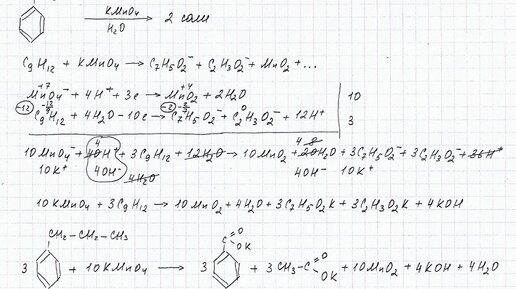 KMnO₄ / H₂O → 2 соли
C₉H₁₂ + KMnO₄ → C₇H₅O₂⁻ + C₂H₃O₂⁻ + MnO₂ + ...
+7 +4
MnO₄⁻ + 4H⁺ + 3e → MnO₂ + 2H₂O | 10
C₉H₁₂ + 4H₂O - 10e → C₇H₅O₂⁻ + C₂H₃O₂⁻ + 12H⁺ | 3
10MnO₄⁻ + 40H⁺ + 3C₉H₁₂ + 12H₂O → 10MnO₂ + 20H₂O + 3C₇H₅O₂⁻ + 3C₂H₃O₂⁻ + 36H⁺
10K⁺ 4OH⁻ 4H₂O 4OH⁻ 10K⁺
10KMnO₄ + 3C₉H₁₂ → 10MnO₂ + 4H₂O + 3C₇H₅O₂K + 3C₂H₃O₂K + 4KOH
CH₂-CH₂-CH₃ C O OK
3 + 10KMnO₄ → 3 + 3CH₃-C O OK + 10MnO₂ + 4KOH + 4H₂O